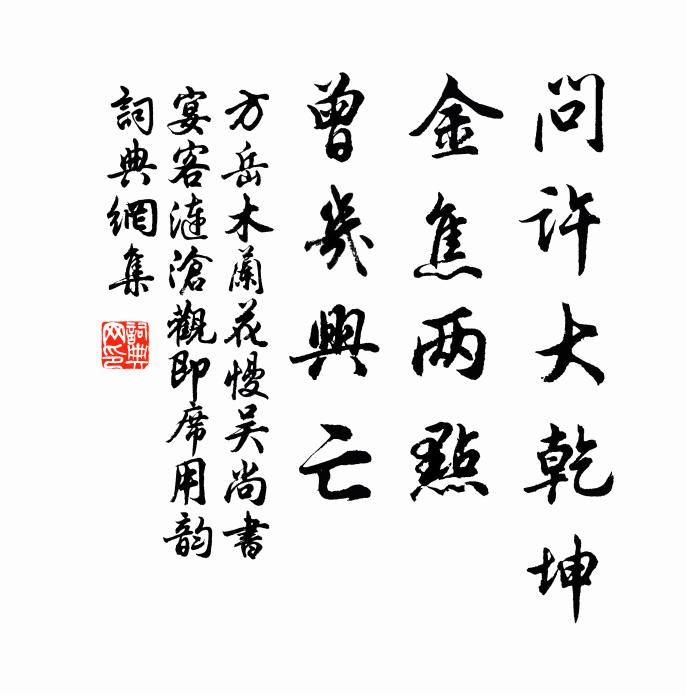 問許大乾坤
金焦两點
曾幾興亡
方岳木蘭花慢吴尚書
宴客漣滄觀即席用韵
詞典網集
詞典网印